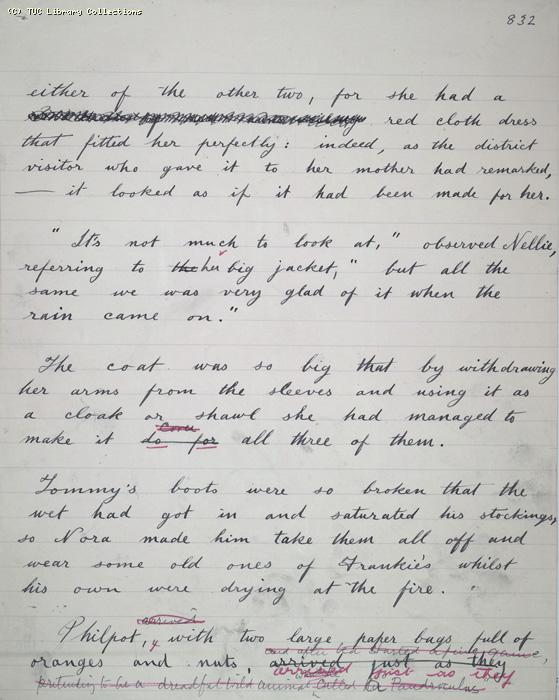 (C) TUC Library Collections
832
either of the other two, for she had a
red cloth dress
that fitted her perfectly: indeed, as the district
visitor who gave it to her mother had remarked,
— it looked as if it had been made for her.
"It's not much to look at," observed Nellie,
referring to the her big jacket, "but all the
same we was very glad of it when the
rain came on."
The coat was so big that by withdrawing
her arms from the sleeves and using it as
a cloak or shawl she had managed to
cover
make it do for all three of them.
Tommy's boots were so broken that the
wet had got in and saturated his stockings,
so Nora made him take them all off and
wear some old ones of Frankie's whilst
his own were drying at the fire.
arrived
Philpot, with two large paper bags full of
and after tea started a fine game,
oranges and nuts, arrived just as they
arrived just as they
pretending to be a dreadful wild animal called